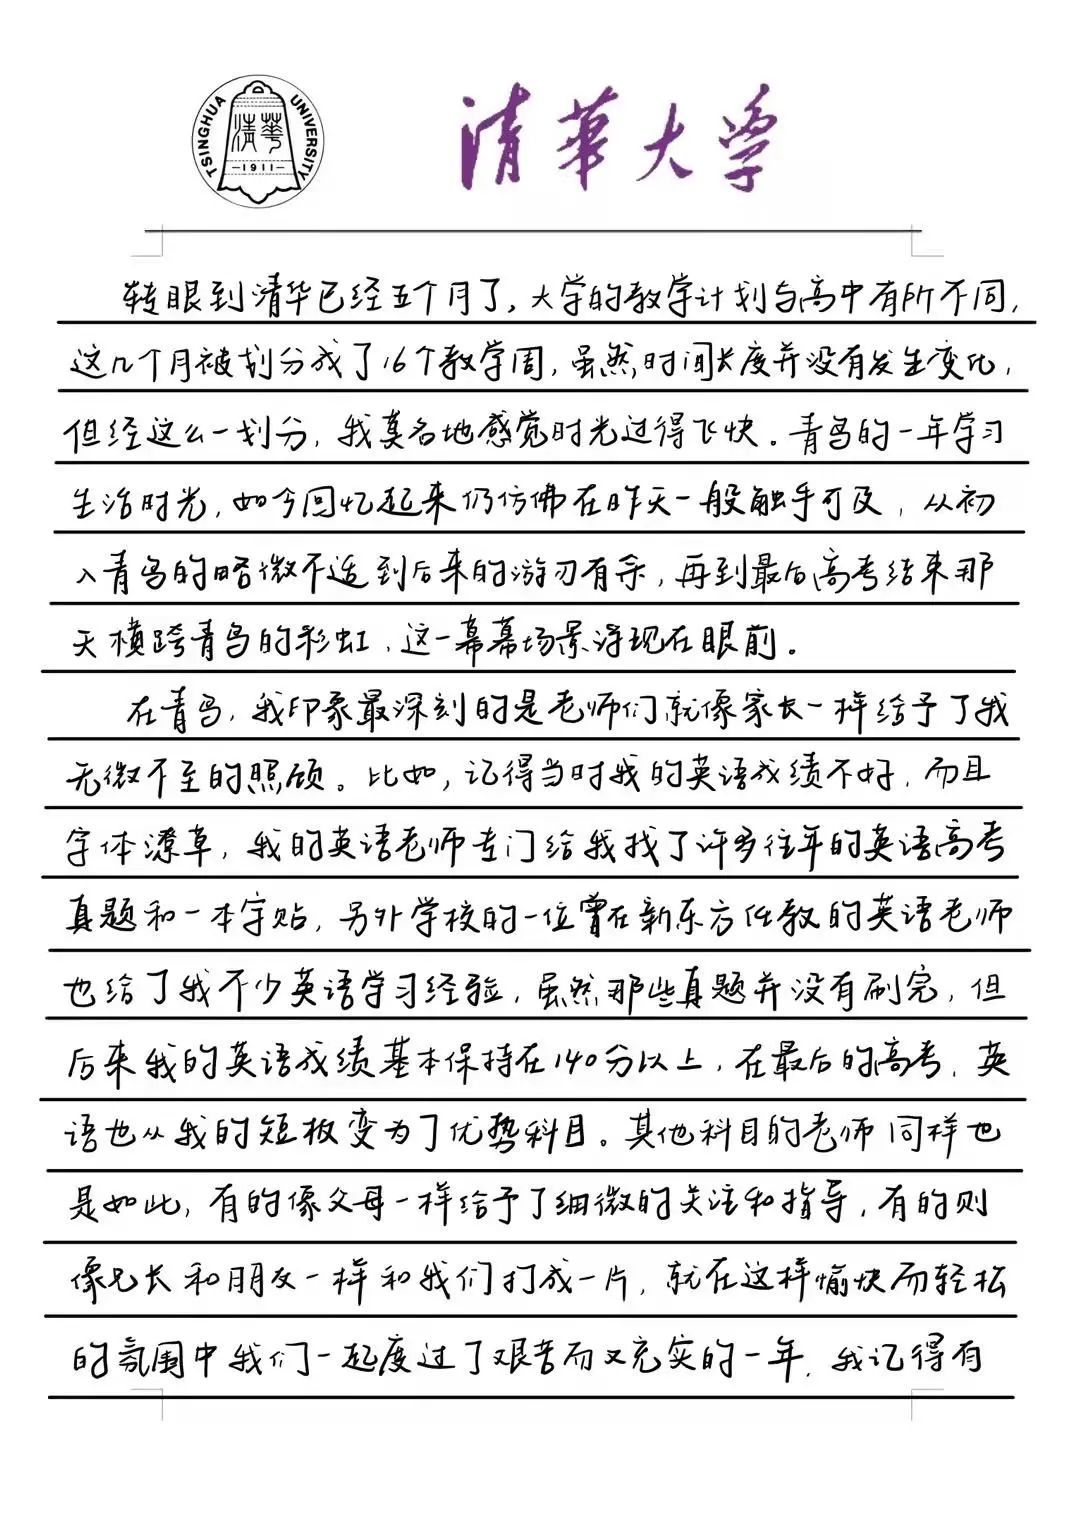 TSINGHUA UNIVERSITY
清華
1911
清華大学
转眼到清华已经五个月了,大学的教学计划与高中有所不同,
这几个月被划分成了16个教学周,虽然时间长度并没有发生变化,
但经这么一划分,我莫名地感觉时光过得飞快。青鸟的一年学习
生活时光,如今回忆起来仍仿佛在昨天一般触手可及,从初
入青鸟的略微不适到后来的游刃有余,再到最后高考结束那
天横跨青鸟的彩虹,这一幕幕场景浮现在眼前。
在青鸟,我印象最深刻的是老师们就像家长一样给予了我
无微不至的照顾。比如,记得当时我的英语成绩不好,而且
字体潦草,我的英语老师专门给我找了许多往年的英语高考
真题和一本字贴,另外学校的一位曾在新东方任教的英语老师
也给了我不少英语学习经验,虽然那些真题并没有刷完,但
后来我的英语成绩基本保持在140分以上,在最后的高考,英
语也从我的短板变为了优势科目。其他科目的老师同样也
是如此,有的像父母一样给予了细微的关注和指导,有的则
像兄长和朋友一样和我们打成一片,就在这样愉快而轻松
的氛围中我们一起度过了艰苦而又充实的一年,我记得有